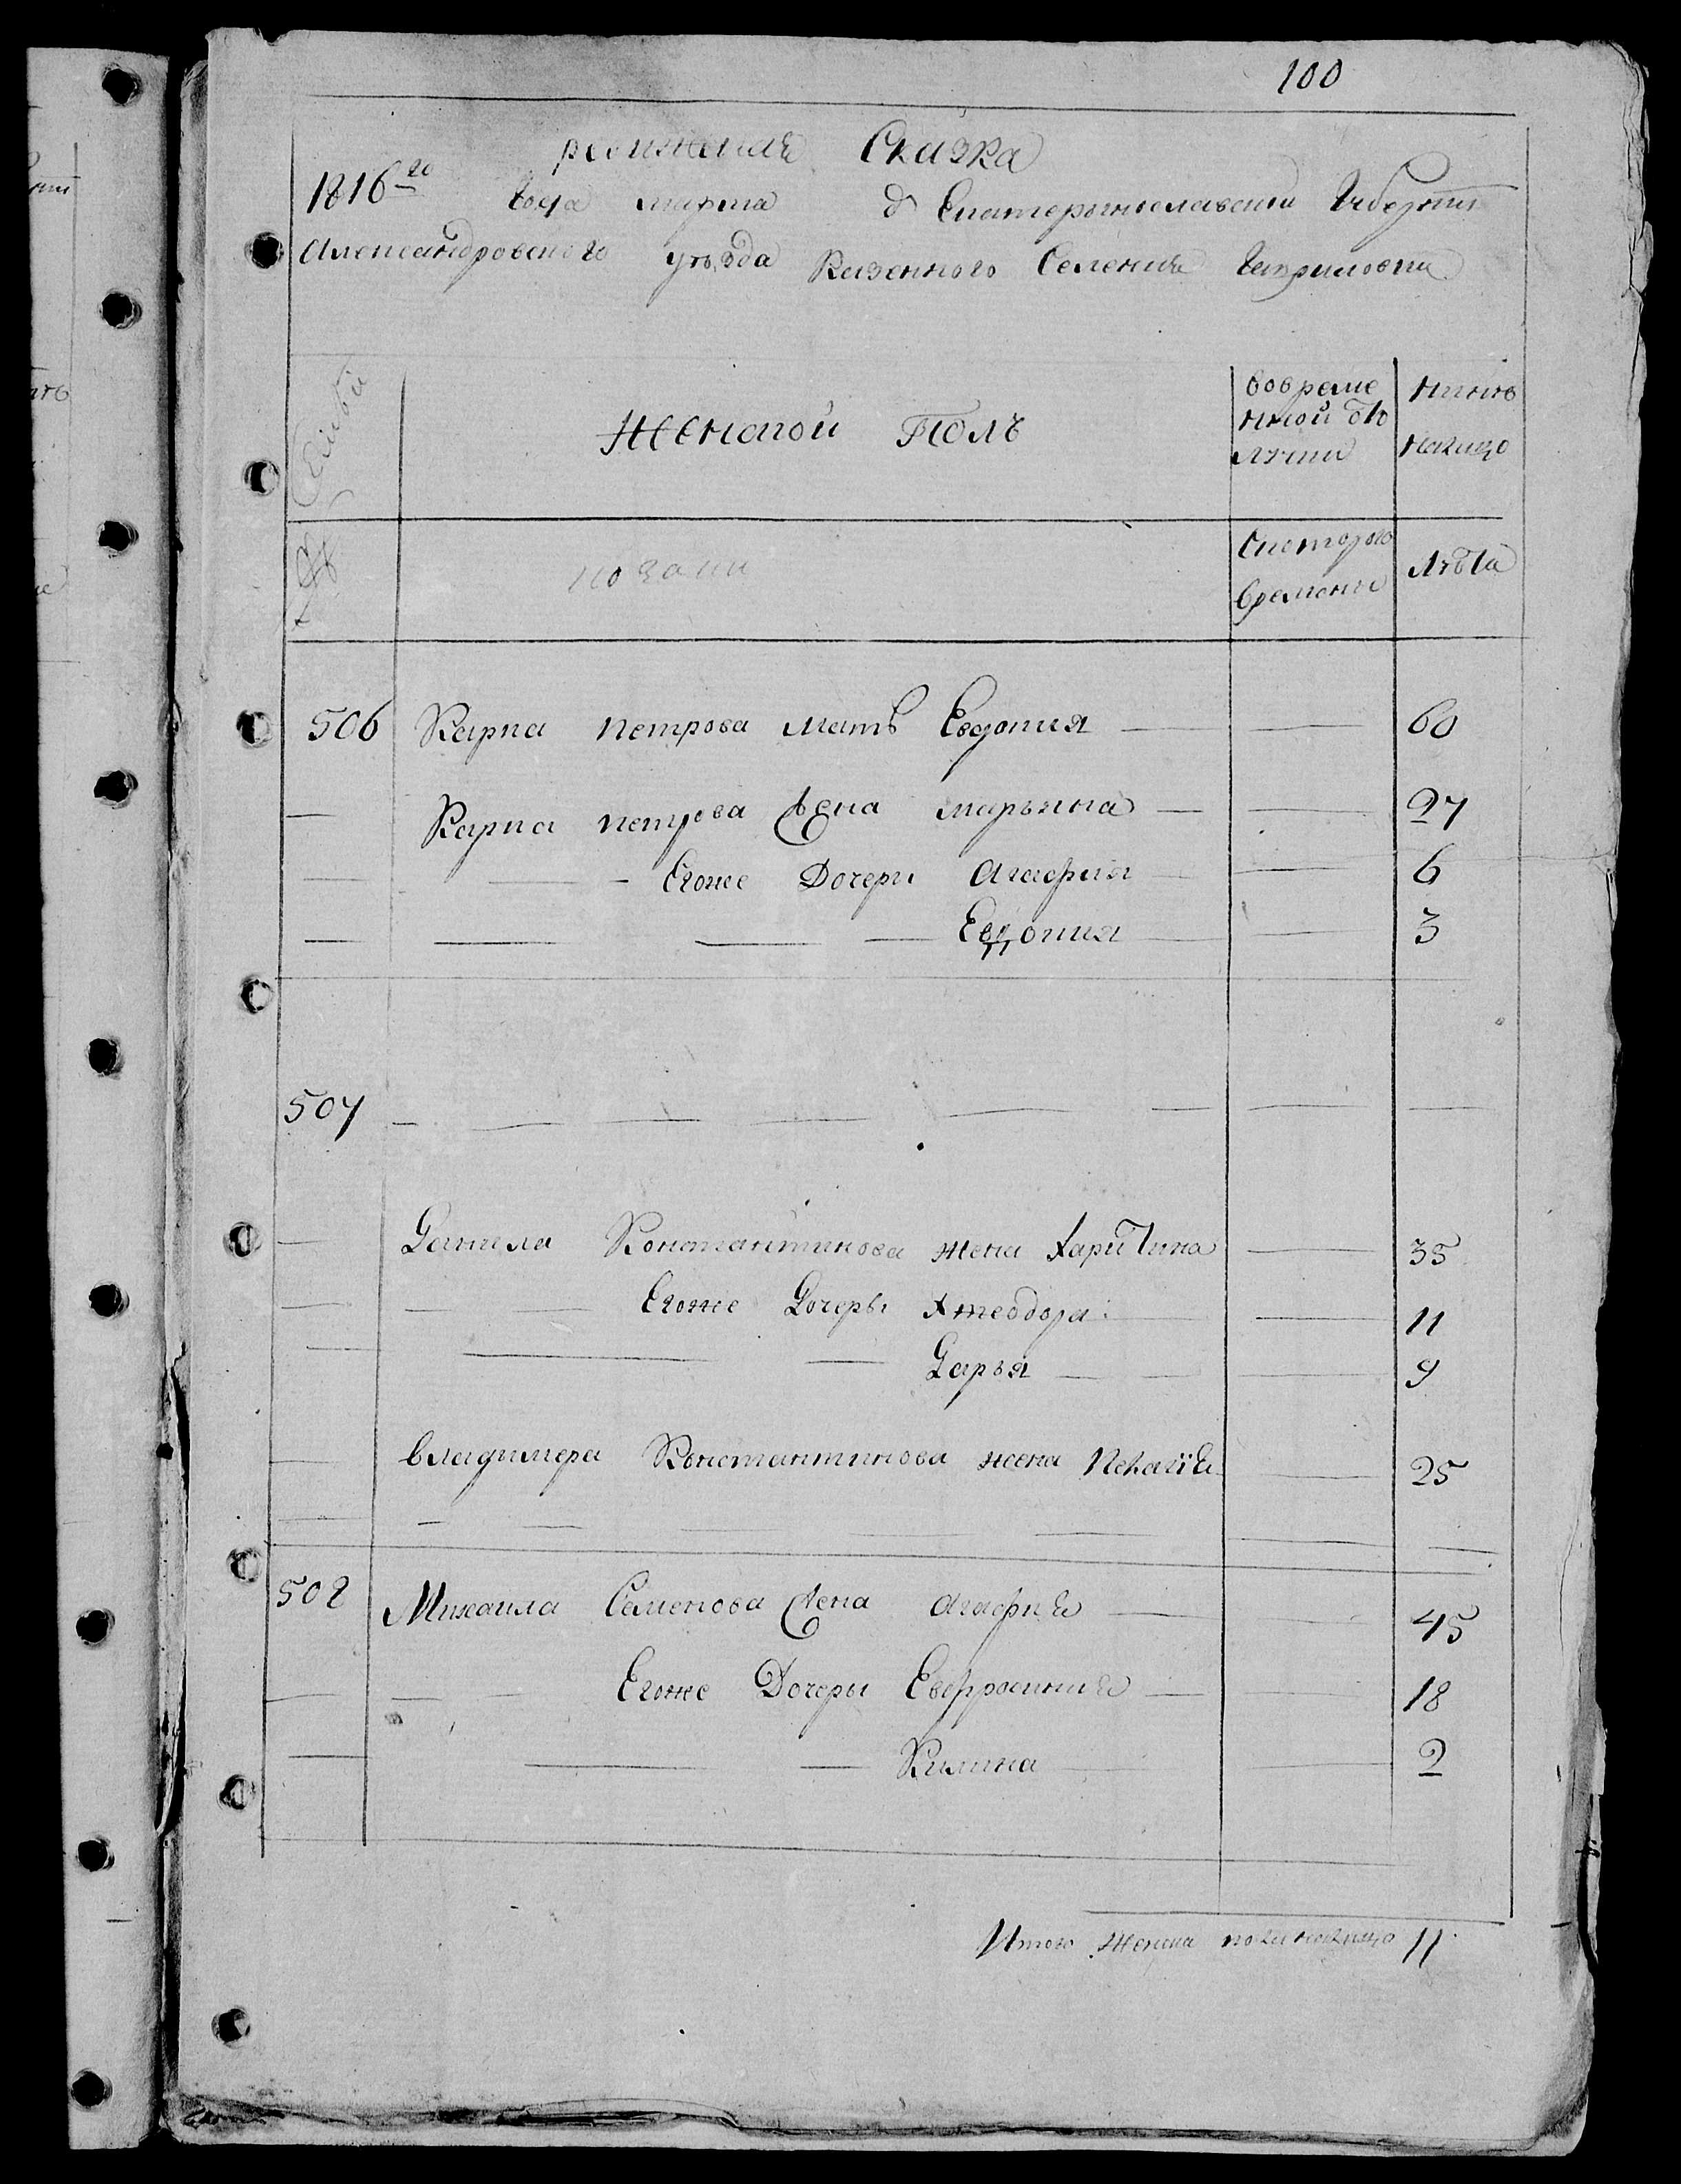 100
ревижская Сказка
1816го года марта д Екатеринославской Губернии
Александровского уѣзда Казенного Селения Гавриловки
Семьи
Женской Полъ
вовреме
нной отъ
лучки
нынѣ
налицо
№
Скоторого
времени
Лѣта
506 Карпа петрова мать Евдокия 60
Карпа петрова жена марьяна 27
Егоже Дочери Агафия 6
Евдокия 3
507
Данила Константинова жена Харитина 35
Егоже Дочеры Хтеодора 11
Дарья 9
владимера Константинова жена Пелагія 25
508 Михаила Семенова жена Агафия 45
Егоже Дочеры Евфросиния 18
Килина 2
Итого женска пола налицо 11